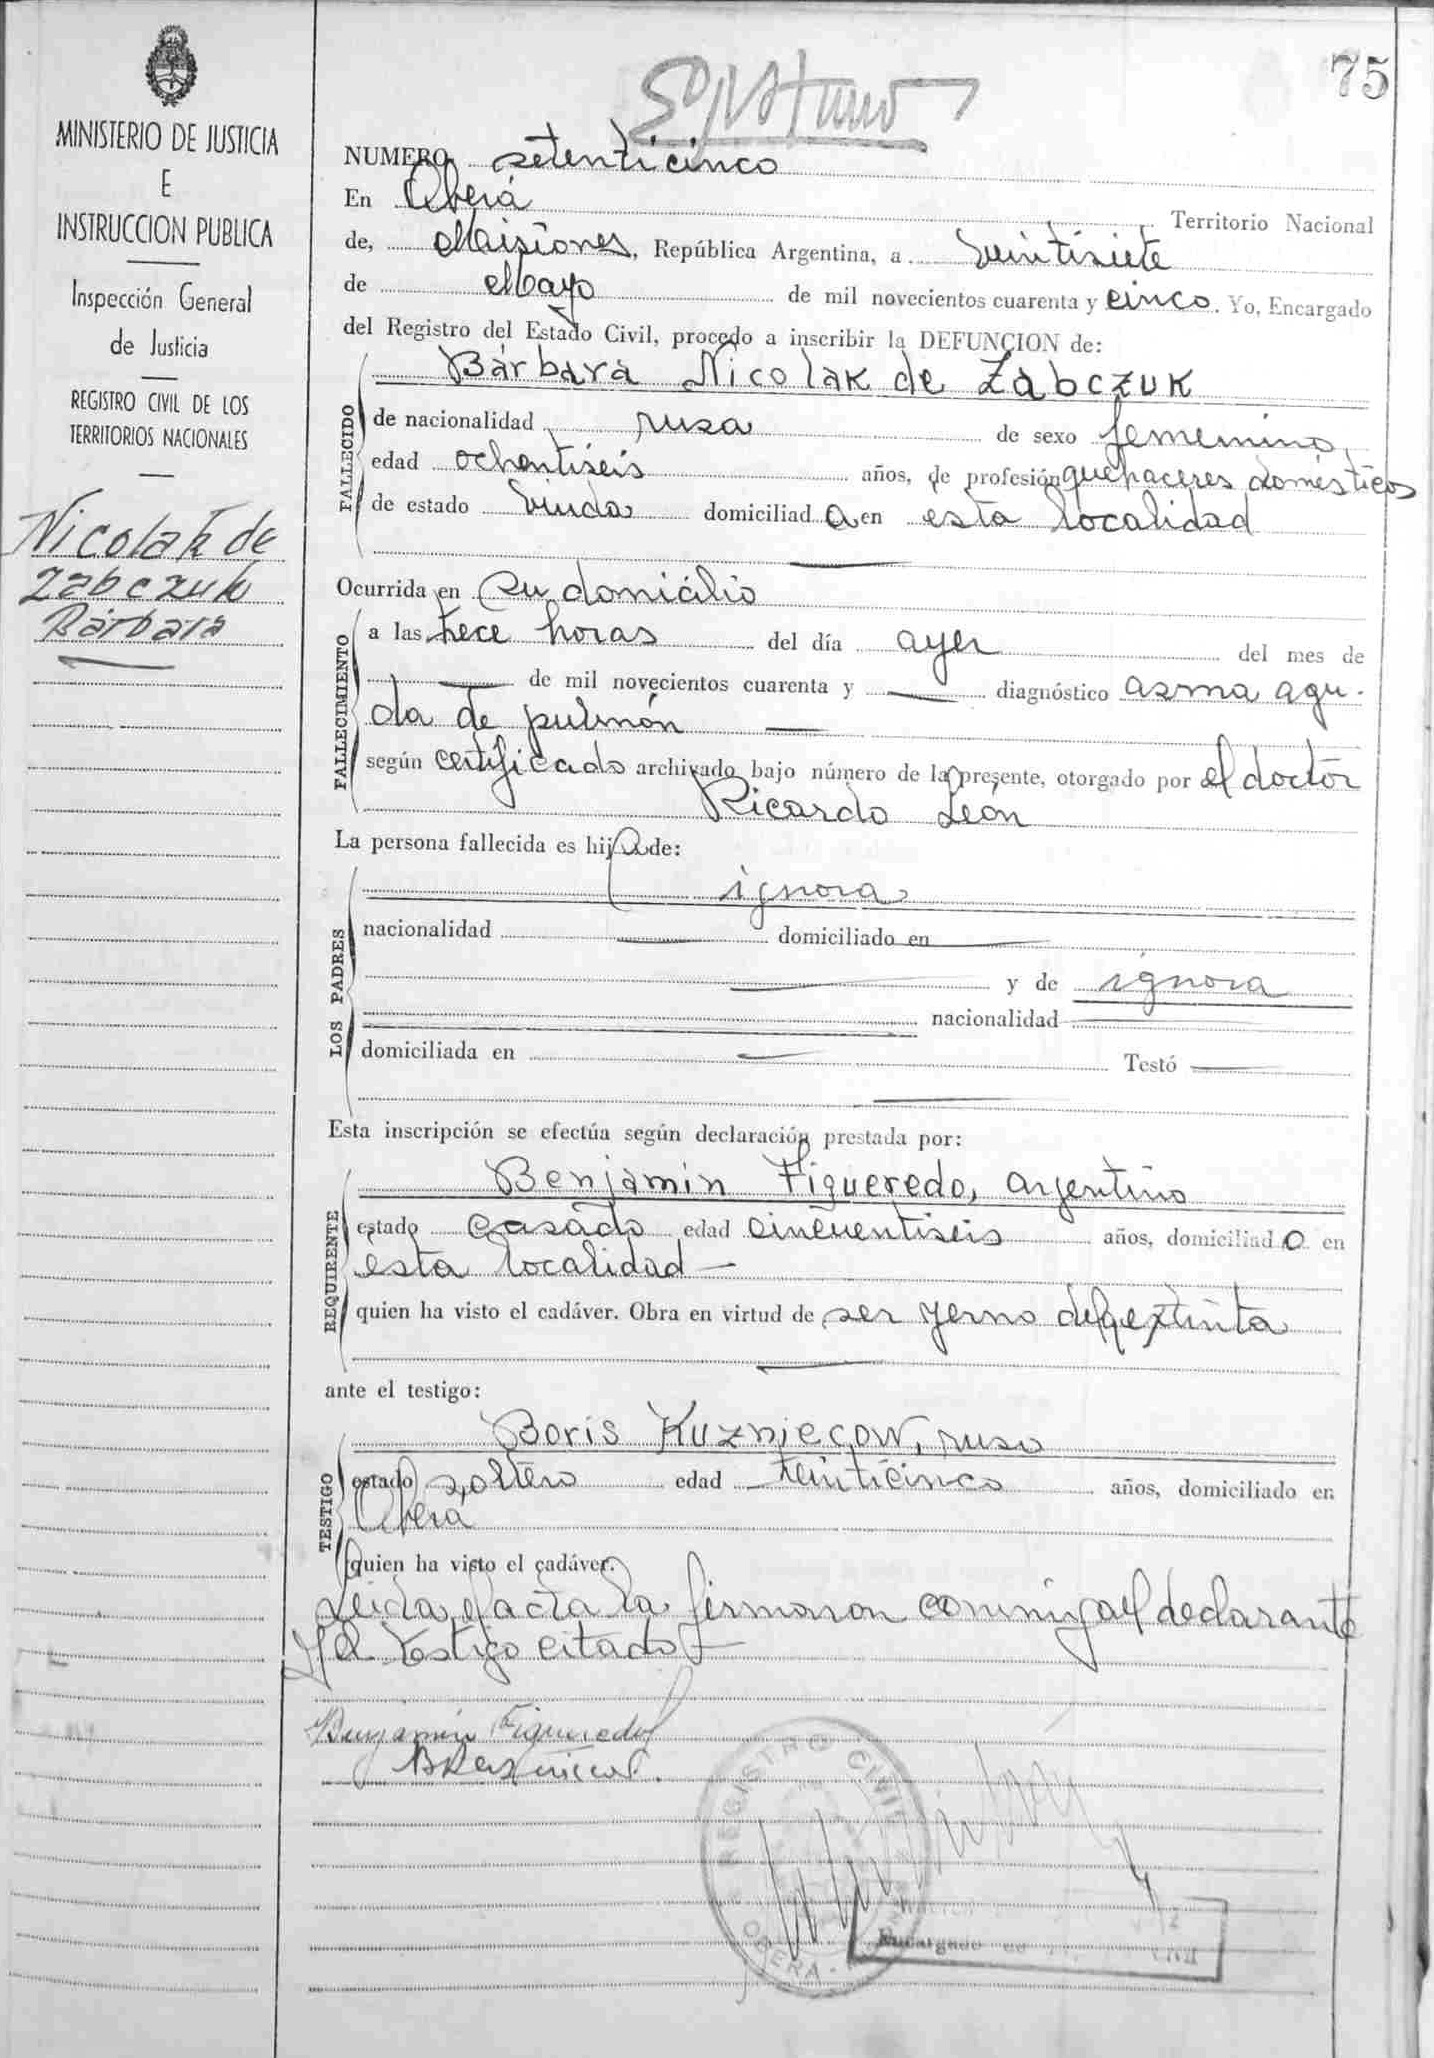 75
MINISTERIO DE JUSTICIA
E
INSTRUCCION PUBLICA
Inspección General
de Justicia
REGISTRO CIVIL DE LOS
TERRITORIOS NACIONALES
Nicolak de
Zabczuk
Bárbara
NUMERO setenticinco
En Oberá Territorio Nacional
de, Misiones, República Argentina, a veintisiete
de Mayo de mil novecientos cuarenta y cinco. Yo, Encargado
del Registro del Estado Civil, procedo a inscribir la DEFUNCION de:
Bárbara Nicolak de Zabczuk
FALLECIDO
de nacionalidad rusa de sexo femenino,
edad ochentiseis años, de profesión quehaceres domésticos
de estado viuda domiciliad a en esta localidad
Ocurrida en su domicilio
FALLECIMIENTO
a las trece horas del día ayer del mes de
de mil novecientos cuarenta y diagnóstico asma agu-
da de pulmón
según certificado archivado bajo número de la presente, otorgado por el doctor
Ricardo León
La persona fallecida es hija de:
LOS PADRES
ignora
nacionalidad domiciliado en
y de ignora
nacionalidad
domiciliada en Testó
Esta inscripción se efectúa según declaración prestada por:
REQUIRENTE
Benjamín Figueredo, argentino
estado casado edad cincuentiseis años, domiciliado en
esta localidad
quien ha visto el cadáver. Obra en virtud de ser yerno de la extinta
ante el testigo:
TESTIGO
Boris Kuzniecow, ruso
estado soltero edad veinticinco años, domiciliado en
Oberá
quien ha visto el cadáver.
Leida el acta la firmaron conmigo el declarante
y el testigo citado
Benjamín Figueredo
REGISTRO CIVIL
OBERA
Encargado de